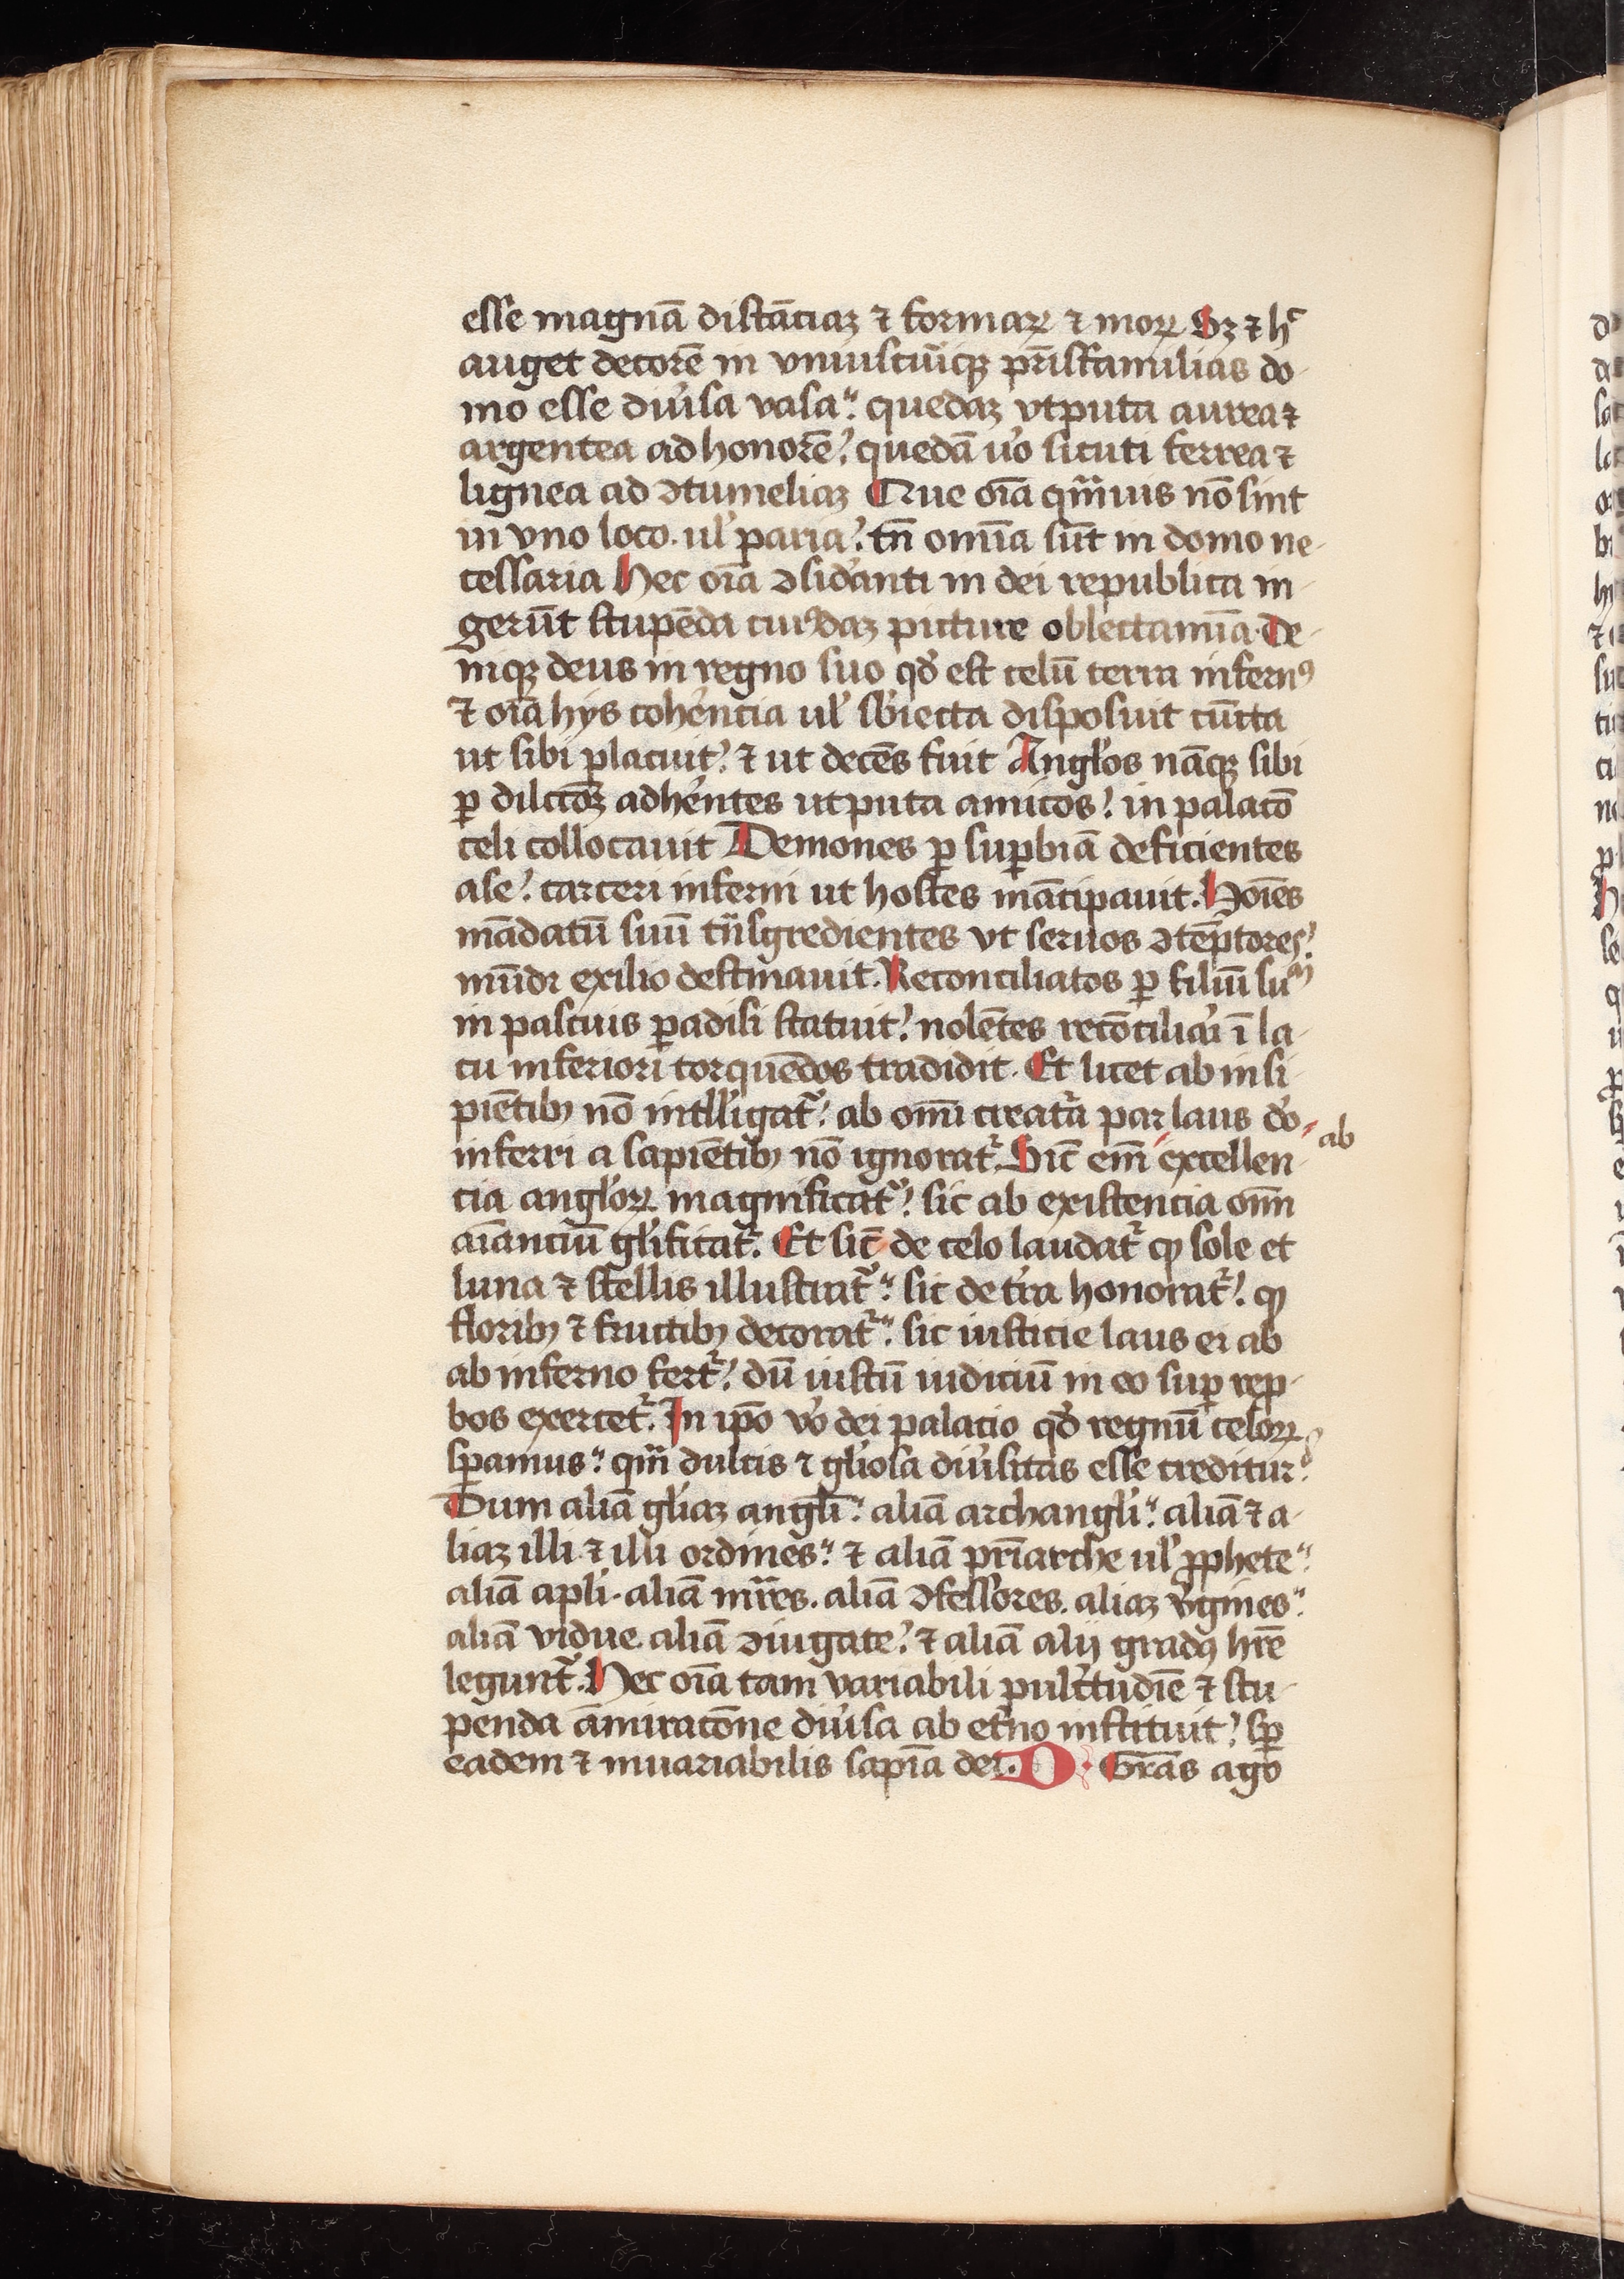 esse magnā distāciaꝫ ⁊ formaꝝ ⁊ moꝝ Sꝫ ⁊ hͨ
auget decorē in vniuscuiꝰcqꝫ pr̄isfamilias do-
mo esse diu̓sa vasa. quedaꝫ vtputa aurea ⁊
argentea ad honorē. quedā u̓o sicuti ferrea ⁊
lignea ad ꝯtumeliaꝫ Que oīa qm̄uis nō sint
in vno loco. ul̓ paria. tn̄ omīa sūt in domo ne-
cessaria Hec oīa ꝯsid̓anti in dei republica in-
gerūt stupēda cuiꝰdaꝫ picture oblectamīa. De-
niqꝫ deus in regno suo qd̓ est celū terra infernꝰ
⁊ oīa hys cohe̓ncia ul̓ sb̓iecta disposuit cūcta
ut sibi placuit. ⁊ ut decēs fuit Angl̓os nāqꝫ sibi
ꝑ dilcōꝫ adhe̓ntes utputa amicos. in palacō
celi collocauit Demones ꝑ suꝑbiā deficientes
a se. carceri inferni ut hostes mācipauit. Hoīes
mādatū suū tn̄sgredientes vt seruos ꝯtēptores.
mūdi exilio destinauit. Reconciliatos ꝑ filiū suū
in pascuis ꝑadisi statuit. nolētes recōciliari ī la-
cu inferiori torquēdos tradidit. Et licet ab insi-
piētibꝫ nō intll̓igatᷣ. ab omī creatᷣa par laus do̓
ab
inferri a sapiētibꝫ nō ignoratᷣ. Sic̄ em̄ excellen-
cia angl̓oꝝ magnificatᷣ. sic ab existencia om̄
aīanciū gl̓ificatᷣ. Et sic̄ de celo laudatᷣ ꝙ sole et
luna ⁊ stellis illustratᷣ. sic de tr̓a honoratᷣ. ꝙ
floribꝫ ⁊ fructibꝫ decoratᷣ. sic iusticie laus ei ab
ab inferno fertᷣ. dū iustū iudiciū in eo suꝑ rep-
bos exercetᷣ. In ip̄o vo̓ dei palacio qd̓ regnū celoꝝ
sꝑamus. qm̄ dulcis ⁊ gl̓iosa diu̓sitas esse creditur.
Dum aliā gl̓iaꝫ angl̓i. aliā archangl̓i. aliā ⁊ a-
liaꝫ illi ⁊ illi ordines. ⁊ aliā pr̄iarche ul̓ ꝓphete.
aliā apl̓i. aliā mr̄es. aliā ꝯfessores. aliaꝫ v̓gines.
aliā vidue. aliā ꝯiugate. ⁊ aliā alij gradꝰ hr̄e
leguntᷣ. Hec oīa tam variabili pulc̓tudīe ⁊ stu-
penda āmiracōne diu̓sa ab et̓no instituit. sꝑ
eadem ⁊ inuariabilis sapīa dei. O Gr̄as ago